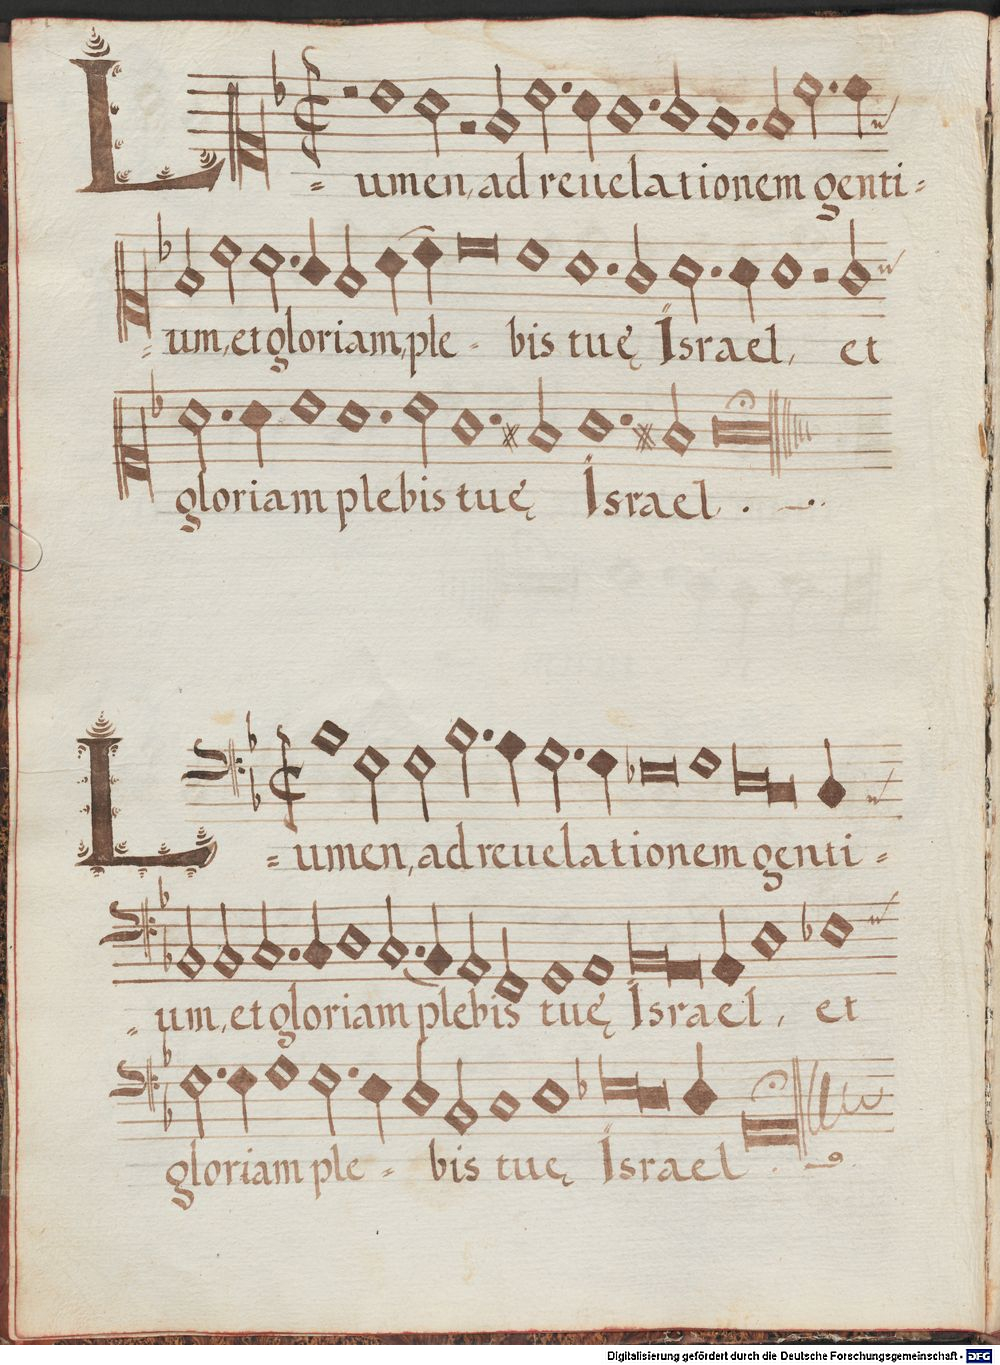 L=umen, ad reuelationem genti=
=um, et gloriam, ple - bis tuę Israel, et
gloriam plebis tuę Israel.
L=umen, ad reuelationem genti=
=um, et gloriam plebis tuę Israel, et
gloriam ple - bis tuę Israel.
Digitalisierung gefördert durch die Deutsche Forschungsgemeinschaft - DFG